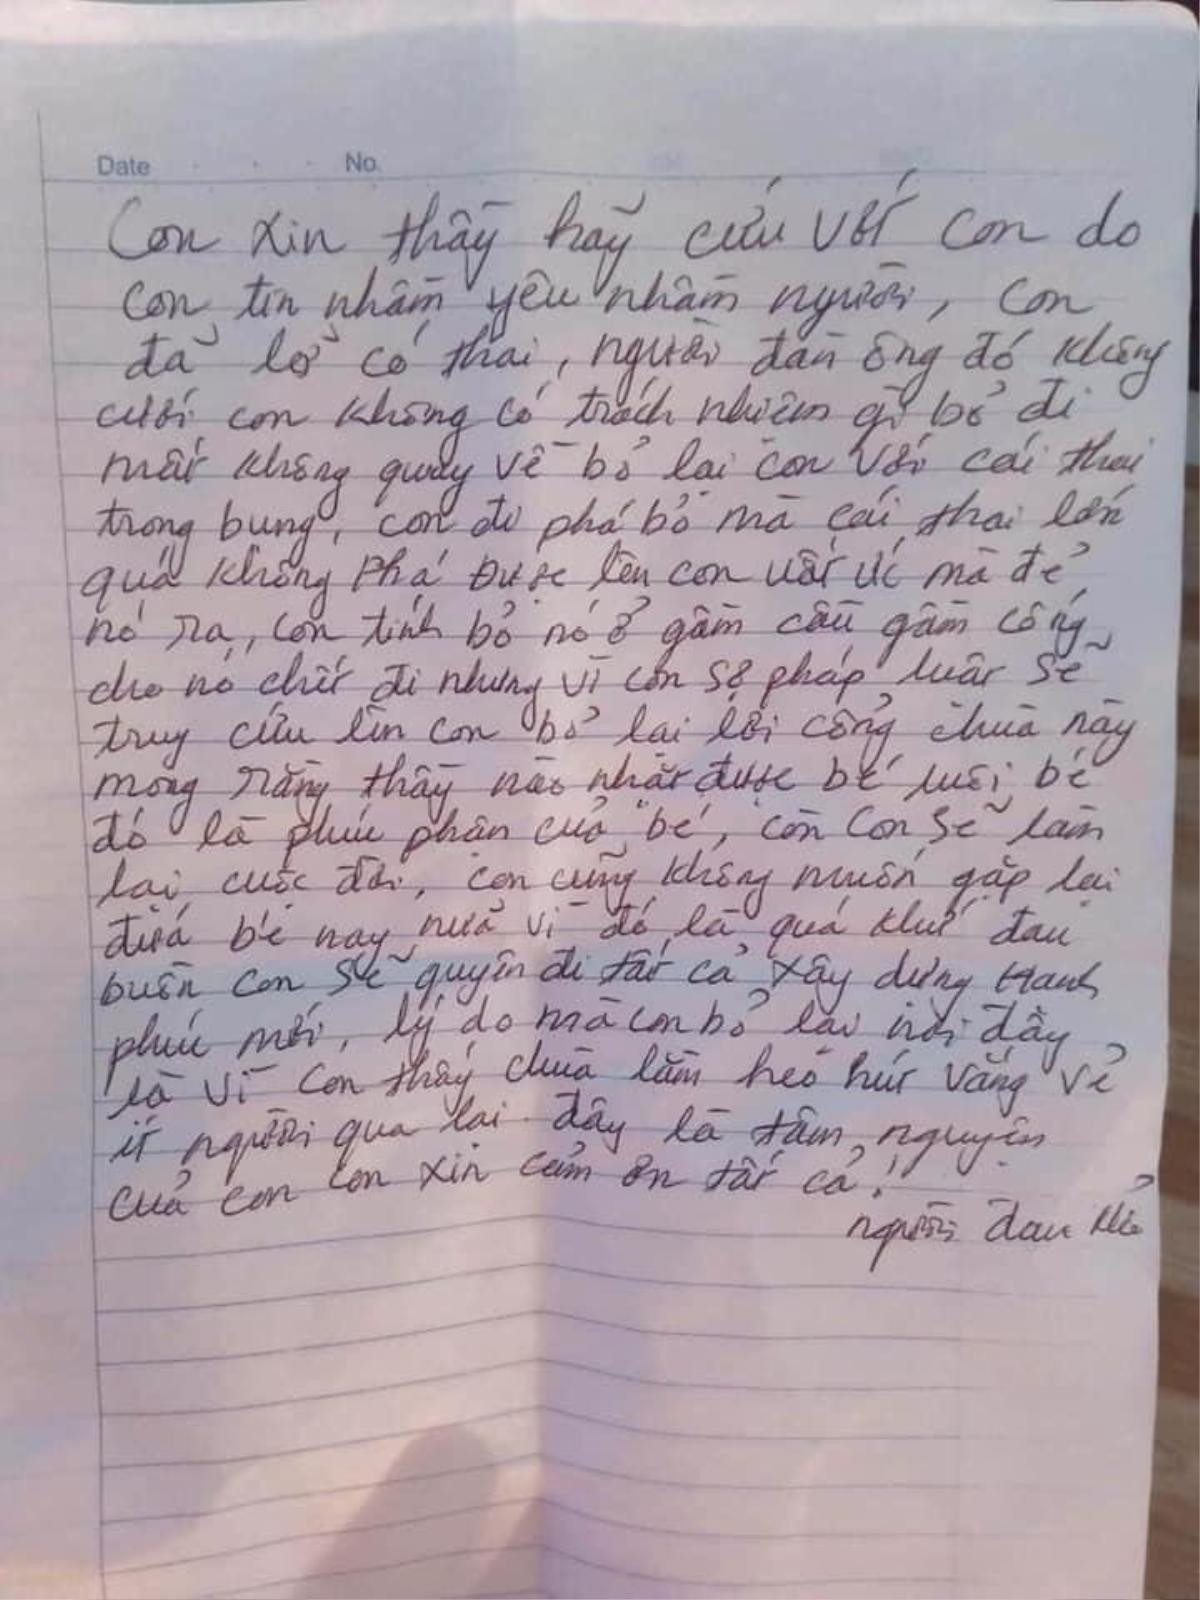 Date No.
Con xin thầy hãy cứu vớt con do
con tin nhầm yêu nhầm người, con
đã lỡ có thai, người đàn ông đó không
cưới con không có trách nhiệm gì bỏ đi
mất không quay về bỏ lại con với cái thai
trong bụng, con đi phá bỏ mà cái thai lớn
quá không phá được lên con uất ức mà đẻ
nó ra, con tính bỏ nó ở gầm cầu gầm cống
cho nó chết đi nhưng vì con sợ pháp luật sẽ
truy cứu lên con bỏ lại lối cổng chùa này
mong rằng thầy nào nhặt được bé nuôi bé
đó là phúc phận của bé, còn con sẽ làm
lại cuộc đời, con cũng không muốn gặp lại
đứa bé này nữa vì đó là quá khứ đau
buồn con sẽ quyên đi tất cả xây dựng Hạnh
phúc mới, lý do mà con bỏ lại nơi đây
là vì con thấy chùa lằm héo hút vắng vẻ
ít người qua lại. đây là tâm nguyện
của con con xin cảm ơn tất cả!
người đau khổ